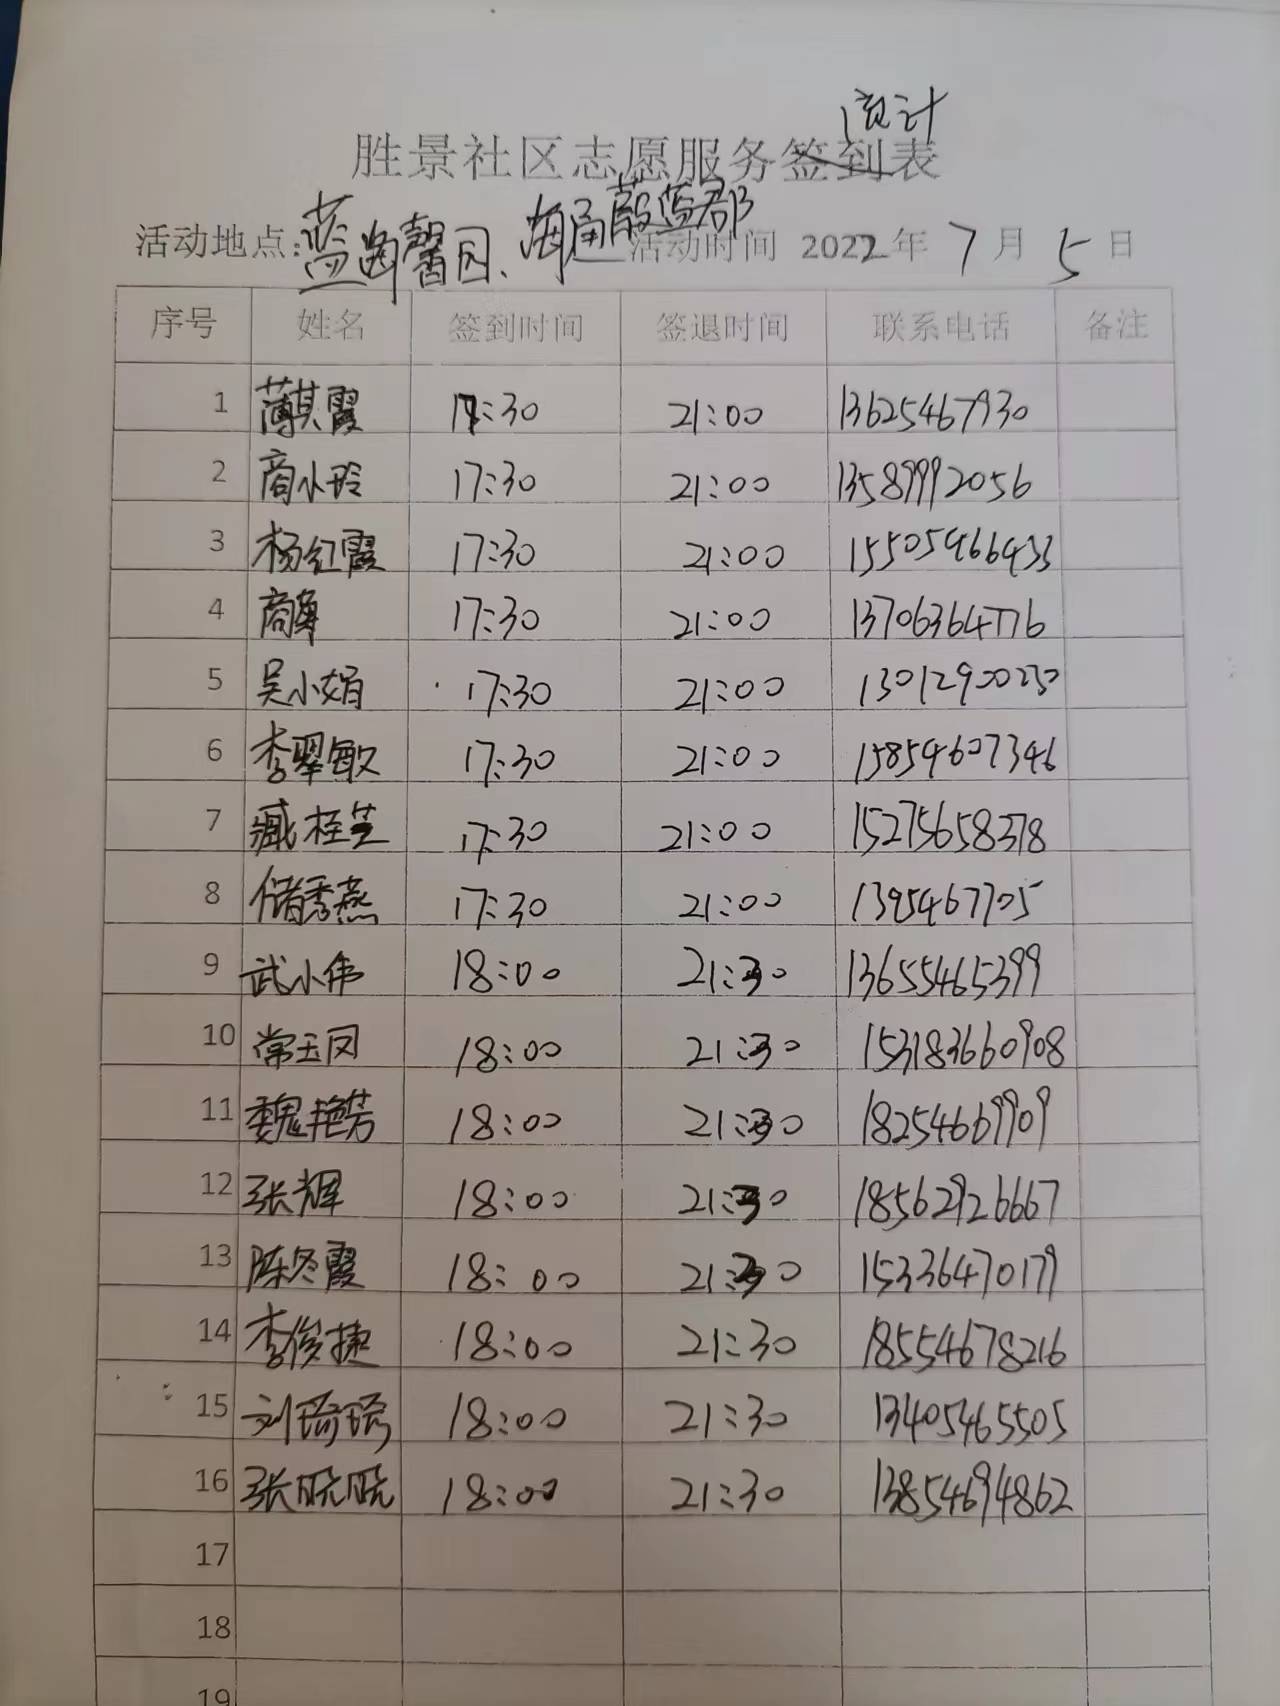 统计
胜景社区志愿服务签到表
活动地点:蓝海馨园、海通蔚蓝郡 活动时间 2022年7月5日
序号 姓名 签到时间 签退时间 联系电话 备注
1 薄其霞 17:30 21:00 13625467930
2 商小玲 17:30 21:00 13589992056
3 杨红霞 17:30 21:00 15505466433
4 商军 17:30 21:00 13706364776
5 吴小娟 17:30 21:00 13012900230
6 李翠敏 17:30 21:00 15854607346
7 臧桂芝 17:30 21:00 15275658378
8 储秀燕 17:30 21:00 1395467705
9 武小伟 18:00 21:30 13655465399
10 常玉凤 18:00 21:30 153183660908
11 魏艳芳 18:00 21:30 18254669909
12 张辉 18:00 21:30 18562926667
13 陈冬霞 18:00 21:30 15336470179
14 李俊捷 18:00 21:30 18554678216
15 刘琦琦 18:00 21:30 13405465505
16 张晓晓 18:00 21:30 13854694862
17
18
19